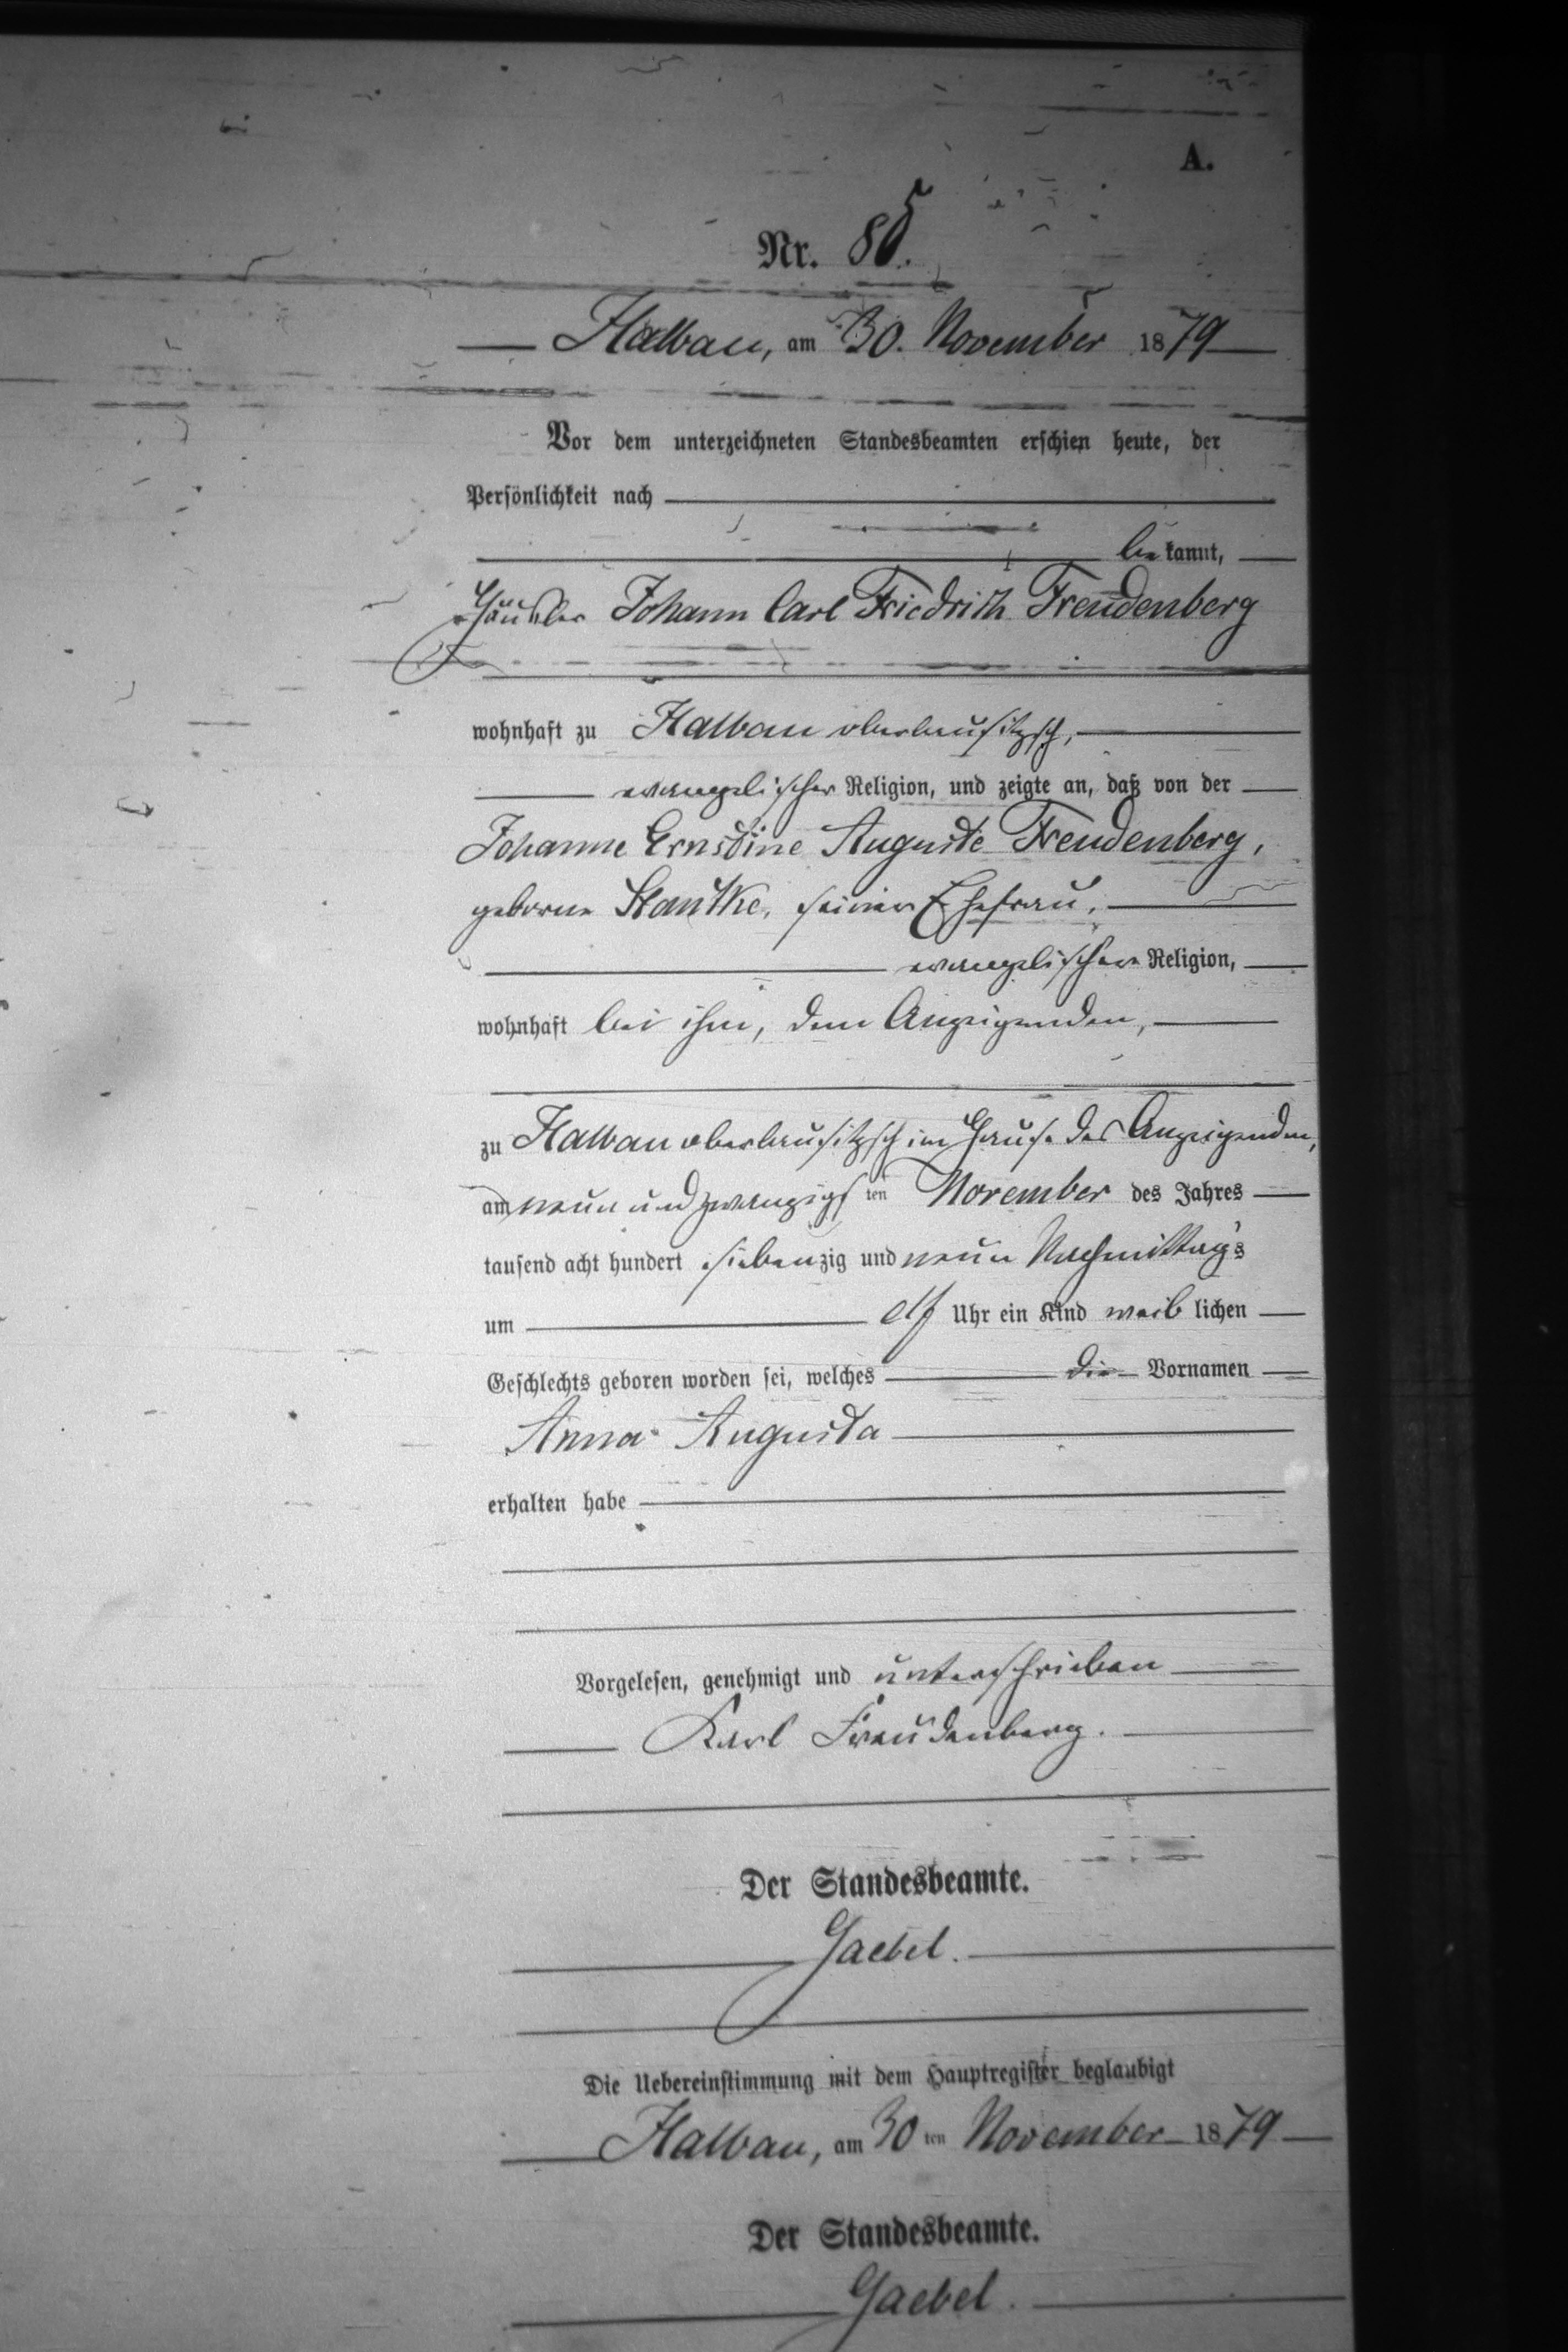 A.
Nr. 85.
Halbau, am 30. November 1879
Vor dem unterzeichneten Standesbeamten erschien heute, der
Persönlichkeit nach
bekannt,
Häusler Johann Carl Friedrich Freudenberg
wohnhaft zu Halbau oberlausitzsch,
evangelischer Religion, und zeigte an, daß von der
Johanne Ernstine Auguste Freudenberg,
geborne seiner Ehefrau,
evangelischer Religion,
wohnhaft bei ihm, dem Anzeigenden,
zu Halbau oberlausitzsch im Hause des Anzeigenden,
am neun und zwanzigsten November des Jahres
tausend acht hundert siebenzig und neun Nachmittags
um elf Uhr ein Kind weiblichen
Geschlechts geboren worden sei, welches die Vornamen
Anna Augusta
erhalten habe
Vorgelesen, genehmigt und unterschrieben
Karl Freudenberg.
Der Standesbeamte.
Gaebel.
Die Uebereinstimmung mit dem Hauptregister beglaubigt
Halbau, am 30ten November 1879
Der Standesbeamte.
Gaebel.